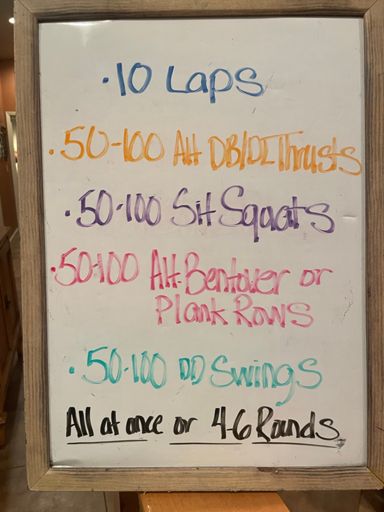 · 10 Laps
· 50-100 Alt DB/DL Thrusts
· 50-100 Sit Squats
· 50-100 Alt. Bentover or
Plank Rows
· 50-100 DD Swings
All at once or 4-6 Rounds